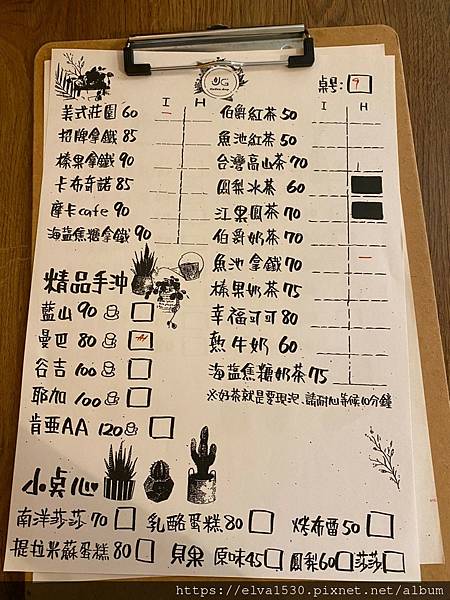 桌号: 9
I H
美式莊園 60
招牌拿鐵 85
榛果拿鐵 90
卡布奇諾 85
摩卡cafe 90
海盐焦糖拿鐵 90
I H
伯爵紅茶 50
魚池紅茶 50
台灣高山茶 70
鳳梨冰茶 60
江果圓茶 70
伯爵奶茶 70
魚池拿鐵 70
榛果奶茶 75
幸福可可 80
熱牛奶 60
海盐焦糖奶茶 75
※好茶就是要現泡、請耐心等候10分鐘
精品手沖
藍山 90
曼巴 80
谷吉 100
耶加 100
肯亞AA 120
小点心
南洋莎莎 70 乳酪蛋糕 80 烤布蕾 50
提拉米蘇蛋糕 80 貝果 原味45 鳳梨60 莎莎
https://elva1530.pixnet.net/album